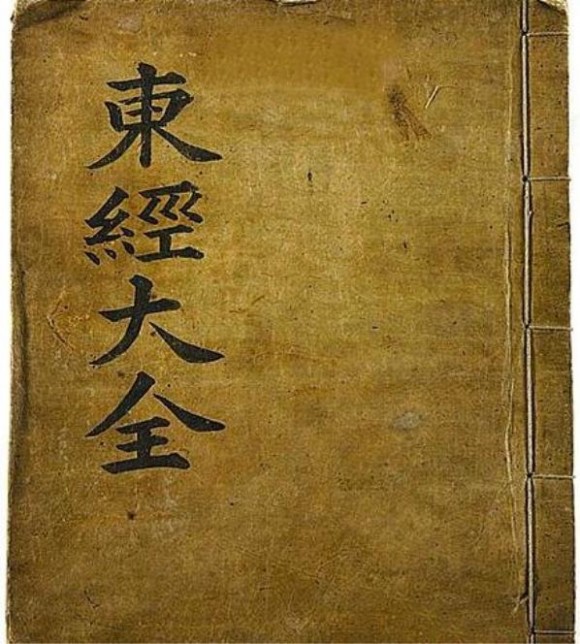 東經大全